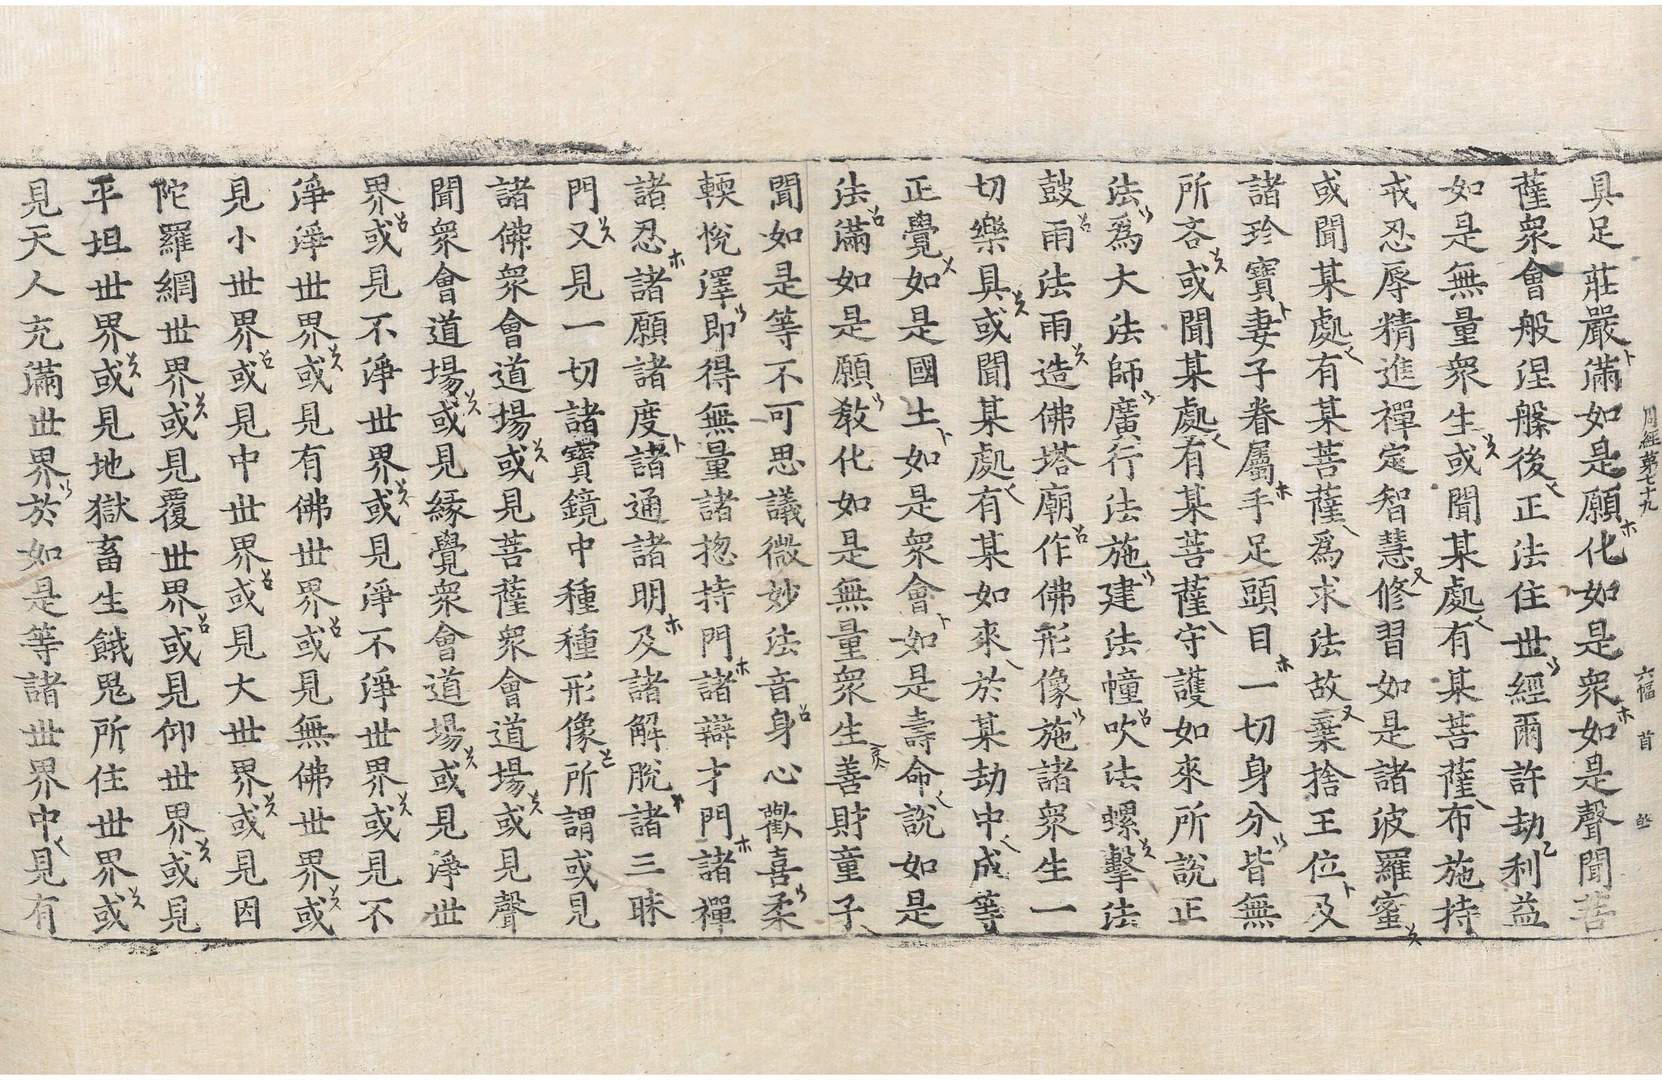 周經第七十九 六幅 首
具足莊嚴滿如是願化如是衆如是聲聞菩
薩衆會般涅槃後正法住世經爾許劫利益
如是無量衆生或聞某處有某菩薩布施持
戒忍辱精進禪定智慧修習如是諸波羅蜜
或聞某處有某菩薩爲求法故棄捨王位及
諸珍寶妻子眷屬手足頭目一切身分皆無
所吝或聞某處有某菩薩守護如來所說正
法爲大法師廣行法施建法幢吹法螺擊法
鼓雨法雨造佛塔廟作佛形像施諸衆生一
切樂具或聞某處有某如來於某劫中成等
正覺如是國土如是衆會如是壽命說如是
法滿如是願教化如是無量衆生善財童子
聞如是等不可思議微妙法音身心歡喜柔
輭悅澤即得無量諸揔持門諸辯才門諸禪
諸忍諸願諸度諸通諸明及諸解脫諸三昧
門又見一切諸寶鏡中種種形像所謂或見
諸佛衆會道場或見菩薩衆會道場或見聲
聞衆會道場或見緣覺衆會道場或見淨世
界或見不淨世界或見淨不淨世界或見不
淨淨世界或見有佛世界或見無佛世界或
見小世界或見中世界或見大世界或見因
陀羅網世界或見覆世界或見仰世界或見
平坦世界或見地獄畜生餓鬼所住世界或
見天人充滿世界於如是等諸世界中見有